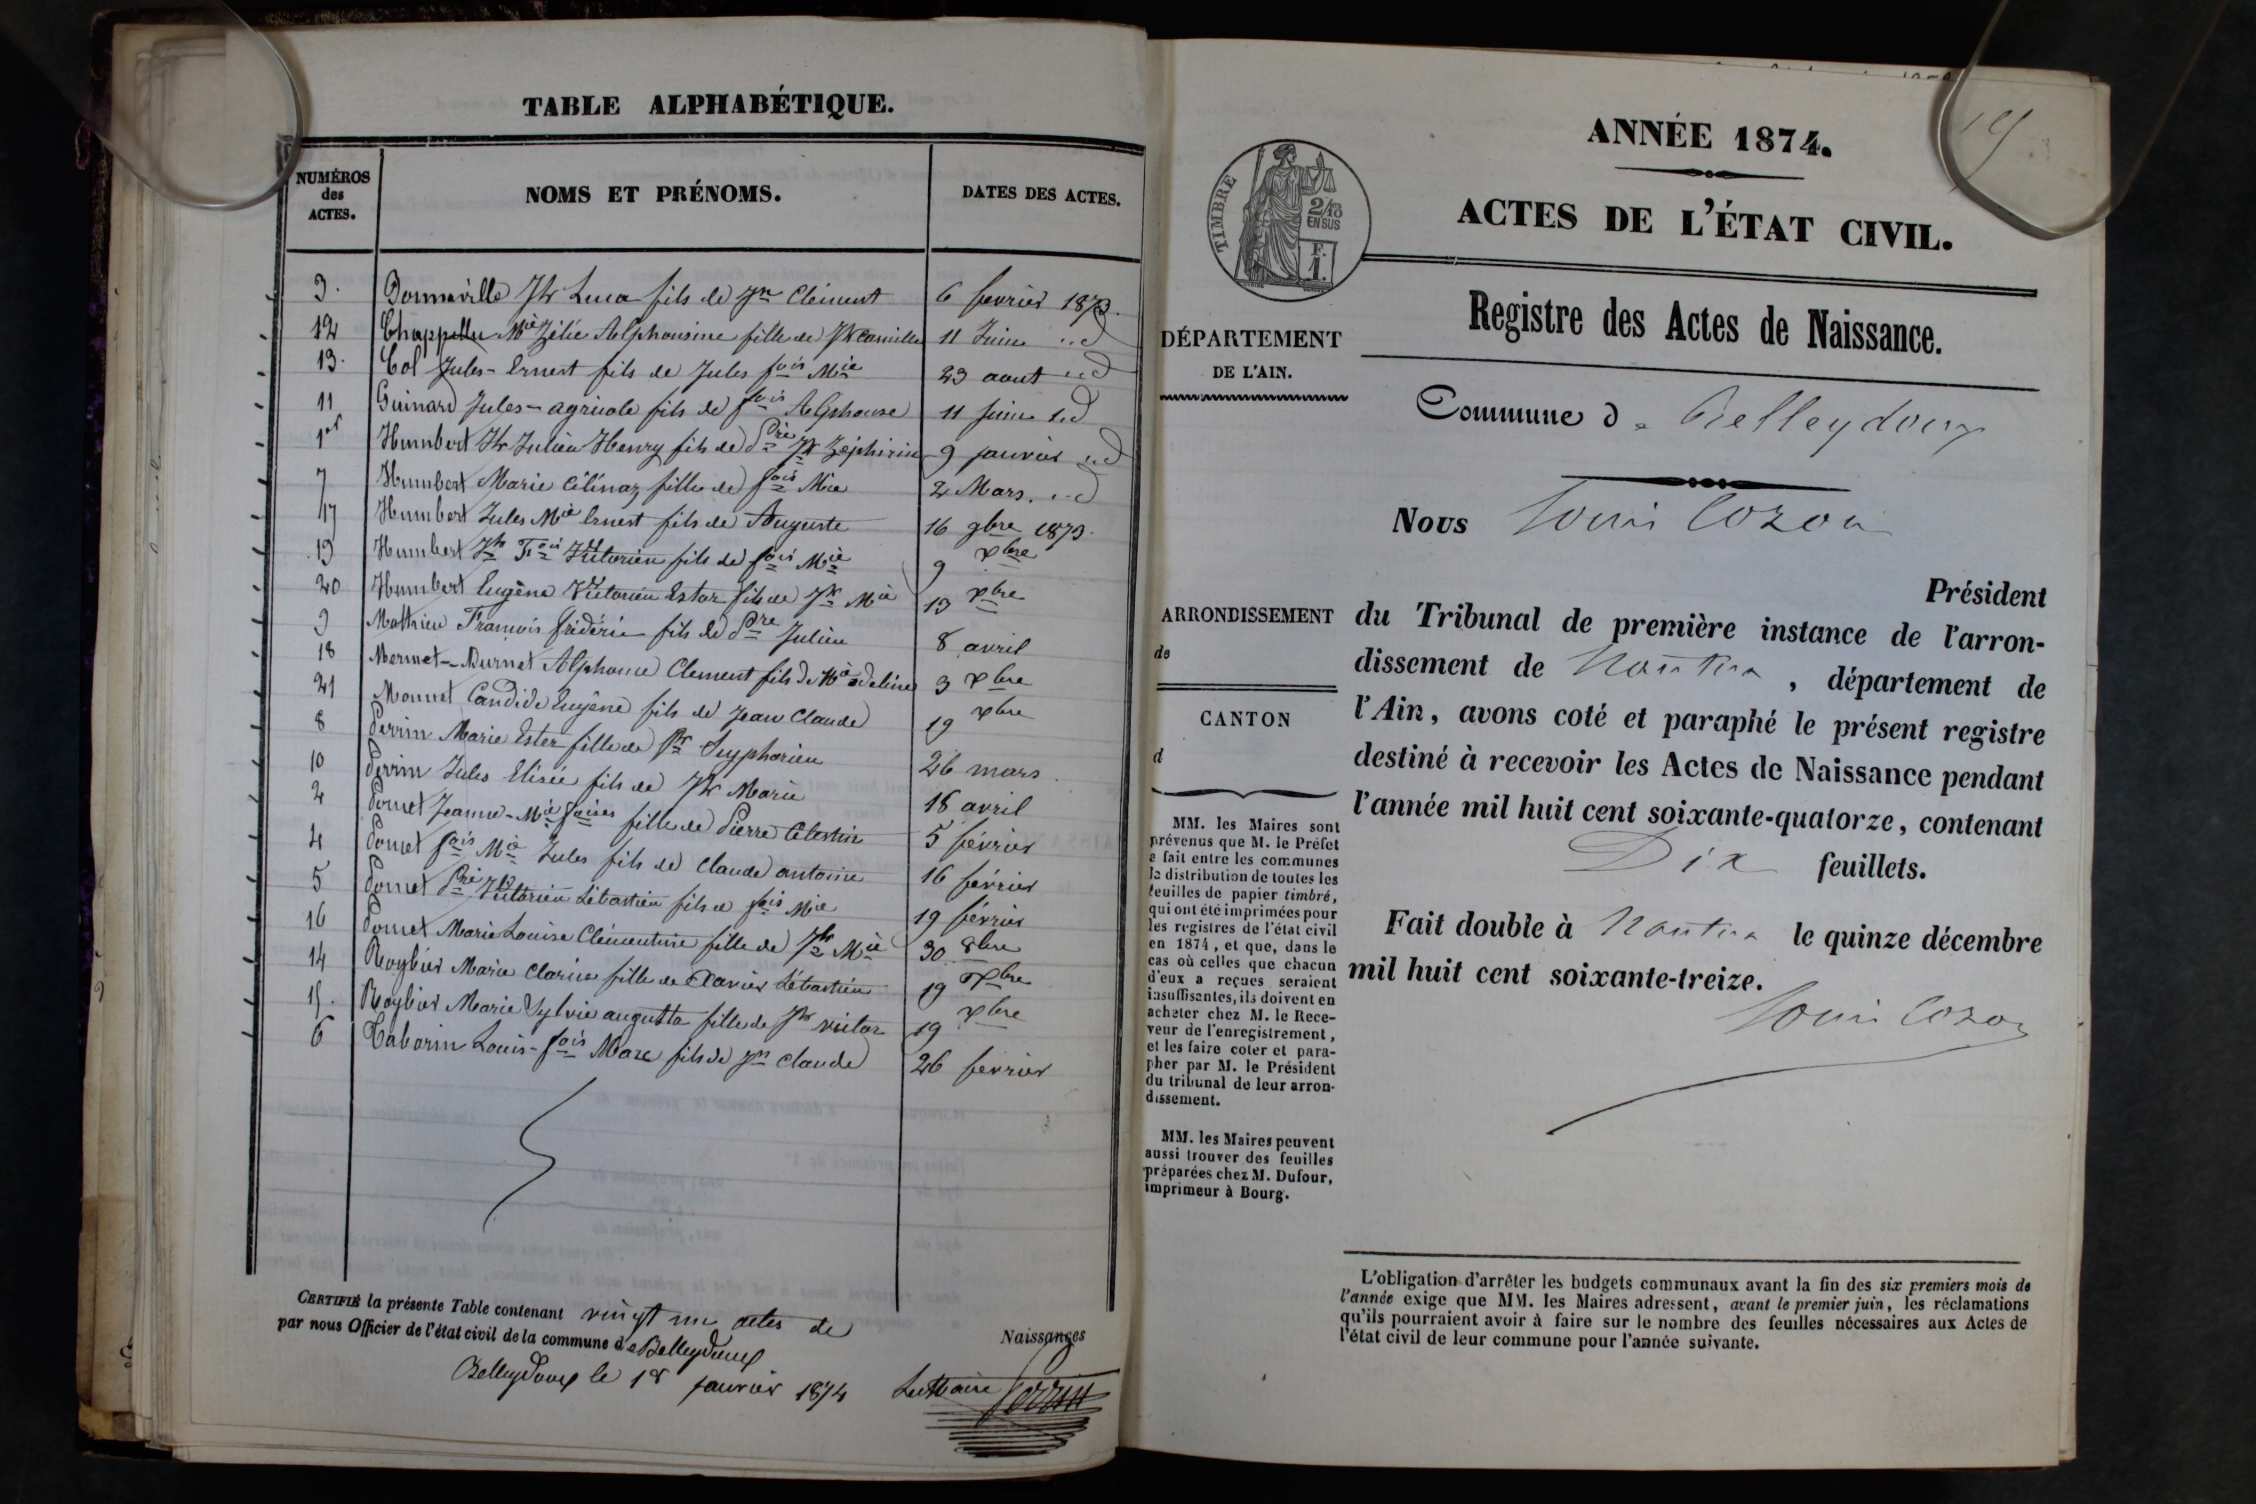 TABLE ALPHABÉTIQUE.
NUMÉROS
des
ACTES.
NOMS ET PRÉNOMS.
DATES DES ACTES.
3. Bonneville Jh Luca fils de Jn Clément 6 fevrier 1873.
12 Chappellu Mie Zélie Alphonsine fille de Jh Camille 11 Juin .. d
13. Col Jules-Ernest fils de Jules fois Mie 23 aout .. d
11 Guinard Jules-agricole fils de fois Alphonse 11 Juin .. d
1er Humbert Jh Julien Henry fils de Pre Jh Zéphirin 9 janvier .. d
7 Humbert Marie Célinaz fille de fois Mie 2 Mars. .. d
17 Humbert Jules Mie Ernest fils de Auguste 16 9bre 1873.
19 Humbert Jh Fois Victorien fils de fois Mie 9 Xbre
20 Humbert Eugène Victorien Ester fils de Jh Mie 13 Xbre
9 Mathieu François frédéric fils de Pre Julien 8 avril
18 Mermet-Burnet Alphonse Clement fils de Mie adeline 3 Xbre
21 Monnet Candide Eugène fils de Jean Claude 19 Xbre
8 Perrin Marie Ester fille de Symphorien 26 mars
10 Perrin Jules Elisée fils de Jh Marie 18 avril
2 Pomet Jeanne-Mie foises fille de Pierre Célestin 5 février
4 Pomet fois Mie Jules fils de Claude antoine 16 février
5 Pomet Pre Victorien Sébastien fils de fois Mie 19 février
16 Pomet Marie Louise Clémentine fille de Jh Mie 30 8bre
14 Roybier Marie Clarisse fille de Xavier Sébastien 19 7bre
15. Roybier Marie Sylvie augusta fille de Jh victor 19 Xbre
6 Taborin Louis-fois Marc fils de Jn Claude 26 février
CERTIFIÉ la présente Table contenant vingt un actes de Naissances
par nous Officier de l'état civil de la commune de Belleydoux
Belleydoux le 1er janvier 1874 Le Maire Perrin
19
ANNÉE 1874.
ACTES DE L'ÉTAT CIVIL.
TIMBRE
2/10
EN SUS
F.
1.
Registre des Actes de Naissance.
DÉPARTEMENT
DE L'AIN.
Commune d e Belleydoux
Nous Louis Cozon
Président
du Tribunal de première instance de l'arron-
dissement de Nantua , département de
l'Ain, avons coté et paraphé le présent registre
destiné à recevoir les Actes de Naissance pendant
l'année mil huit cent soixante-quatorze, contenant
Dix feuillets.
Fait double à Nantua le quinze décembre
mil huit cent soixante-treize.
Louis Cozon
ARRONDISSEMENT
de
CANTON
d
MM. les Maires sont
prévenus que M. le Préfet
a fait entre les communes
la distribution de toutes les
feuilles de papier timbré,
qui ont été imprimées pour
les registres de l'état civil
en 1874, et que, dans le
cas où celles que chacun
d'eux a reçues seraient
insuffisantes, ils doivent en
acheter chez M. le Rece-
veur de l'enregistrement,
et les faire coter et para-
pher par M. le Président
du tribunal de leur arron-
dissement.
MM. les Maires peuvent
aussi trouver des feuilles
préparées chez M. Dufour,
imprimeur à Bourg.
L'obligation d'arrêter les budgets communaux avant la fin des six premiers mois de
l'année exige que MM. les Maires adressent, avant le premier juin, les réclamations
qu'ils pourraient avoir à faire sur le nombre des feuilles nécessaires aux Actes de
l'état civil de leur commune pour l'année suivante.